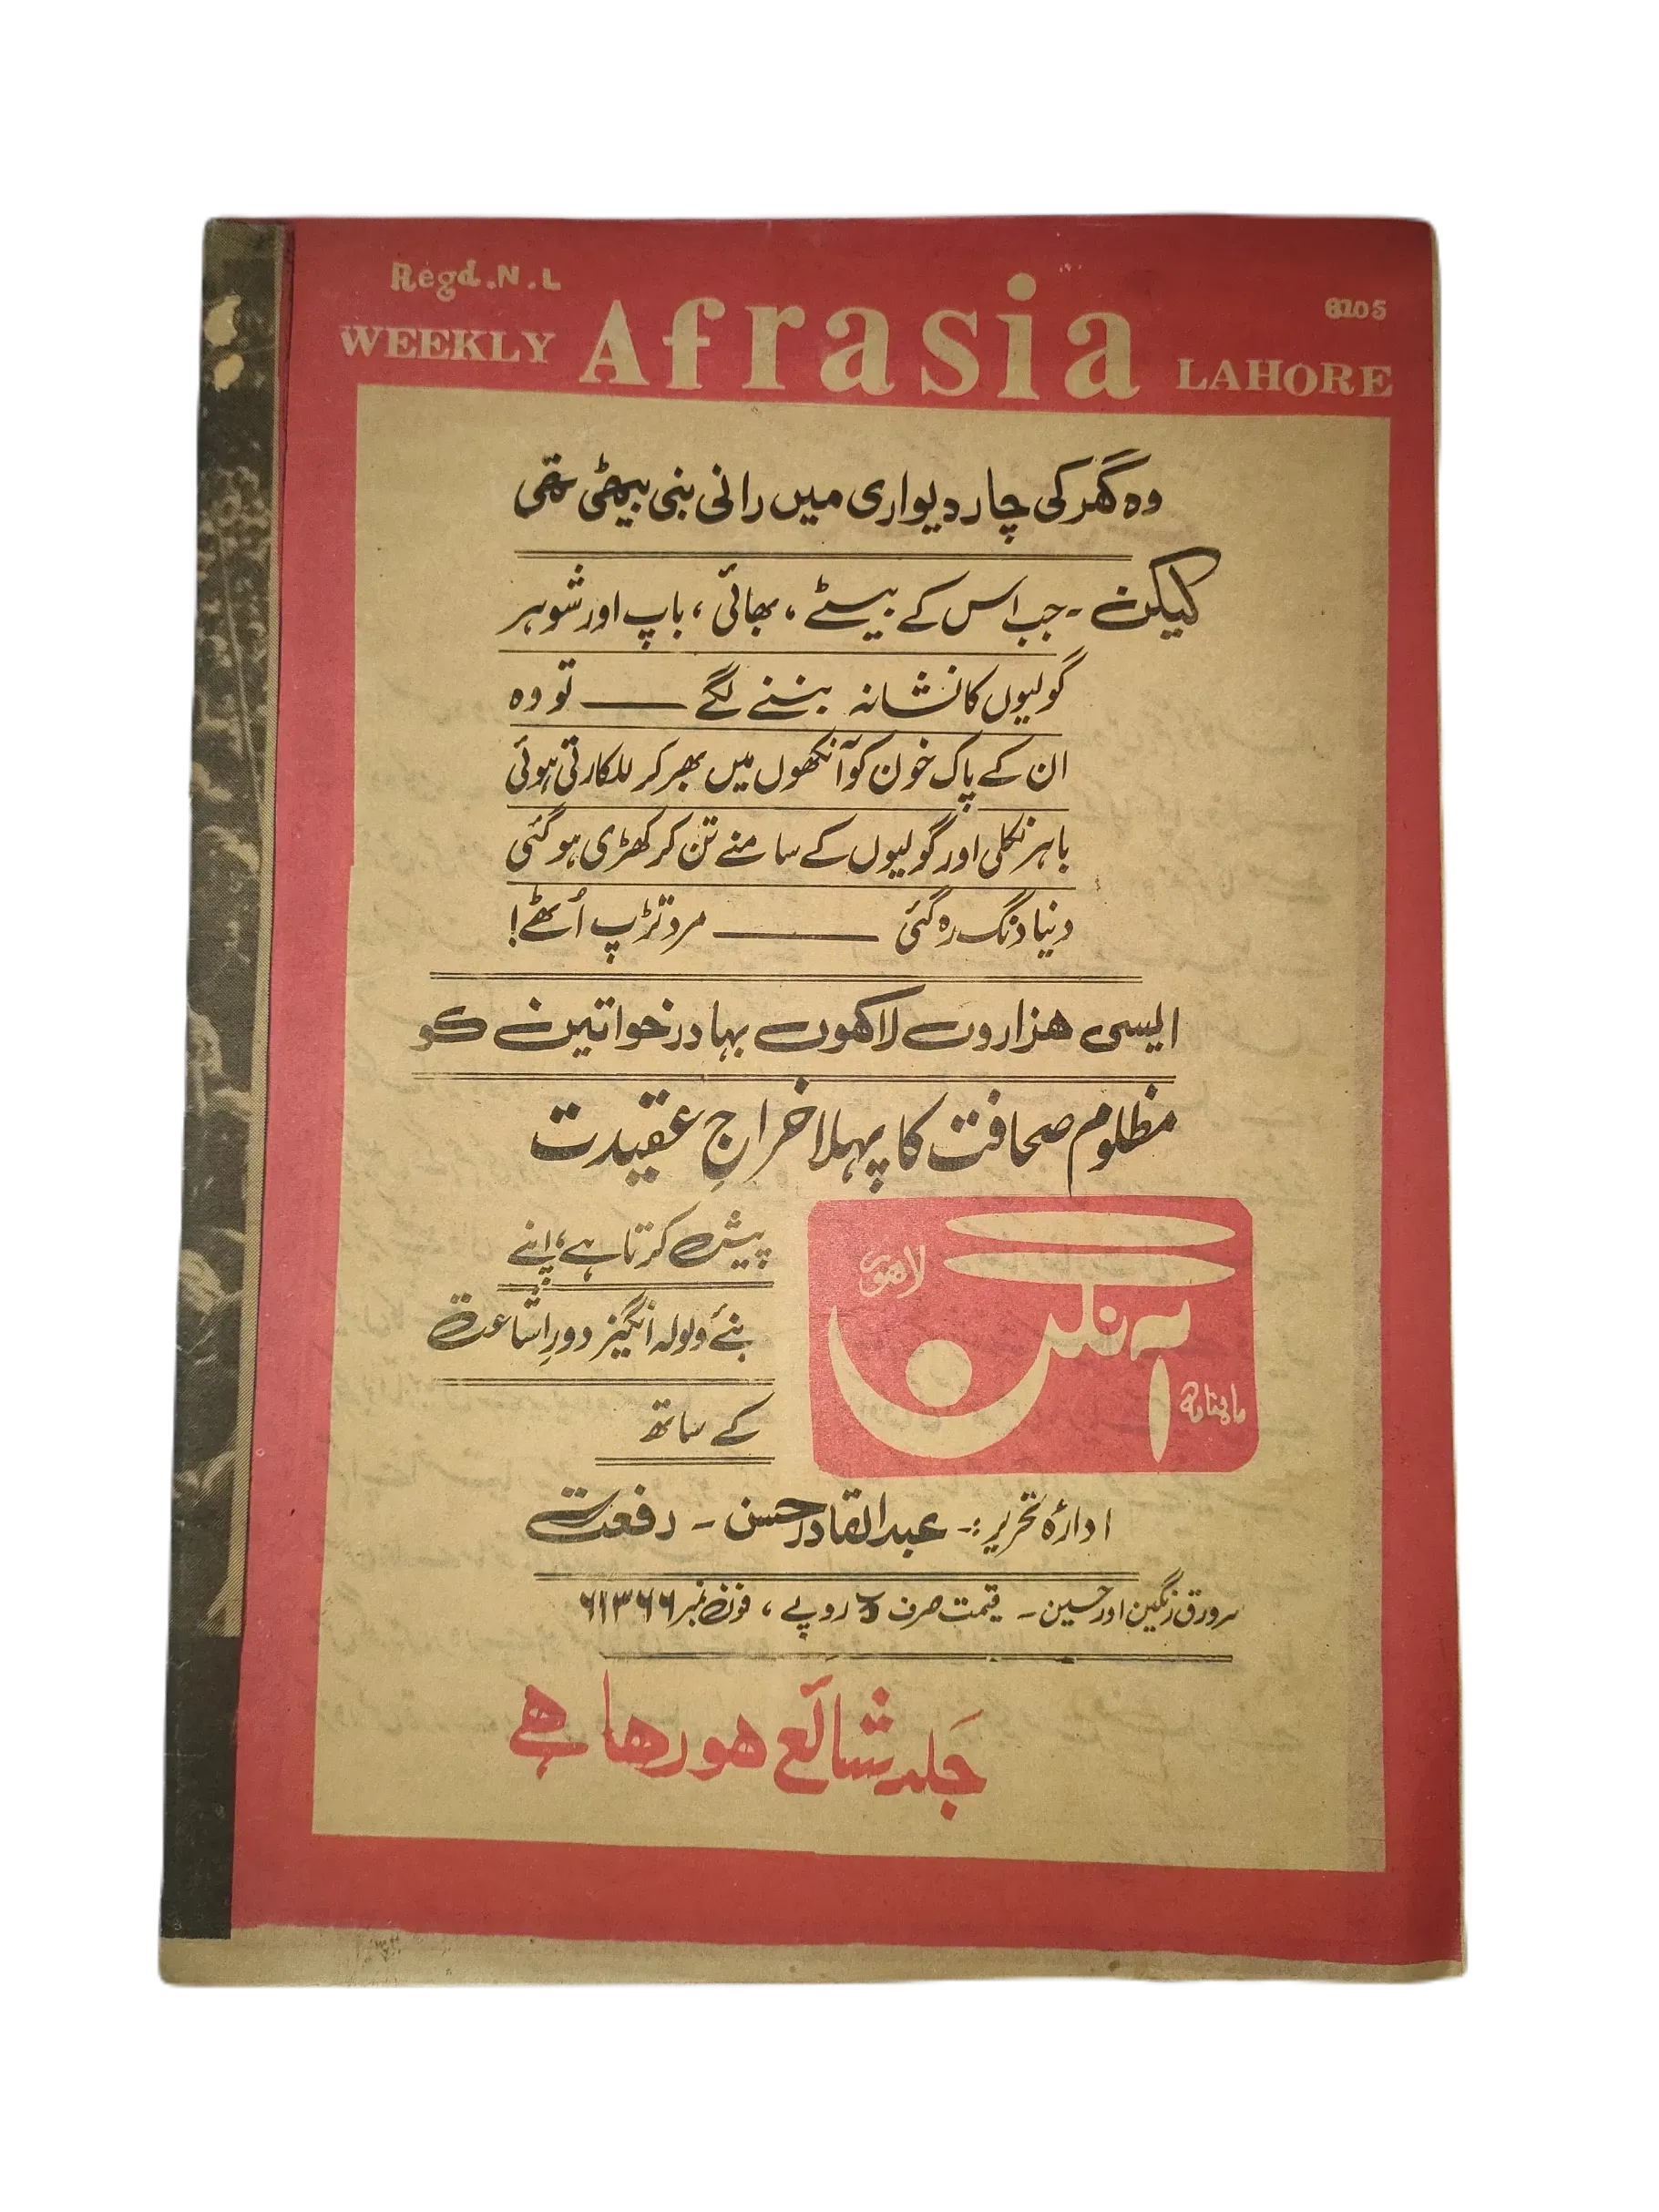 Regd.N.L
6105
WEEKLY Afrasia LAHORE
وہ گھر کی چار دیواری میں رانی بنی بیٹھی تھی
لیکن ۔ جب اس کے بیٹے ، بھائی ، باپ اور شوہر
گولیوں کا نشانہ بننے لگے ــــــ تو وہ
ان کے پاک خون کو آنکھوں میں بھر کر للکارتی ہوئی
باہر نکلی اور گولیوں کے سامنے تن کر کھڑی ہو گئی
دنیا دنگ رہ گئی ــــــ مرد تڑپ اُٹھے!
ایسی ہزاروں لاکھوں بہادر خواتین کو
مظلوم صحافت کا پہلا خراجِ عقیدت
ماہنامہ آہنگن لاہور
پیش کرتا ہے، اپنے
نئے ولولہ انگیز دورِ اشاعت
کے ساتھ
ادارہ تحریر :۔ عبدالقادر حسن ۔ رفعت
سرورق رنگین اور حسین ۔ قیمت صرف ۵ روپے ، فون نمبر ۶۱۳۶۶
جَلد شائع ہو رہا ہے